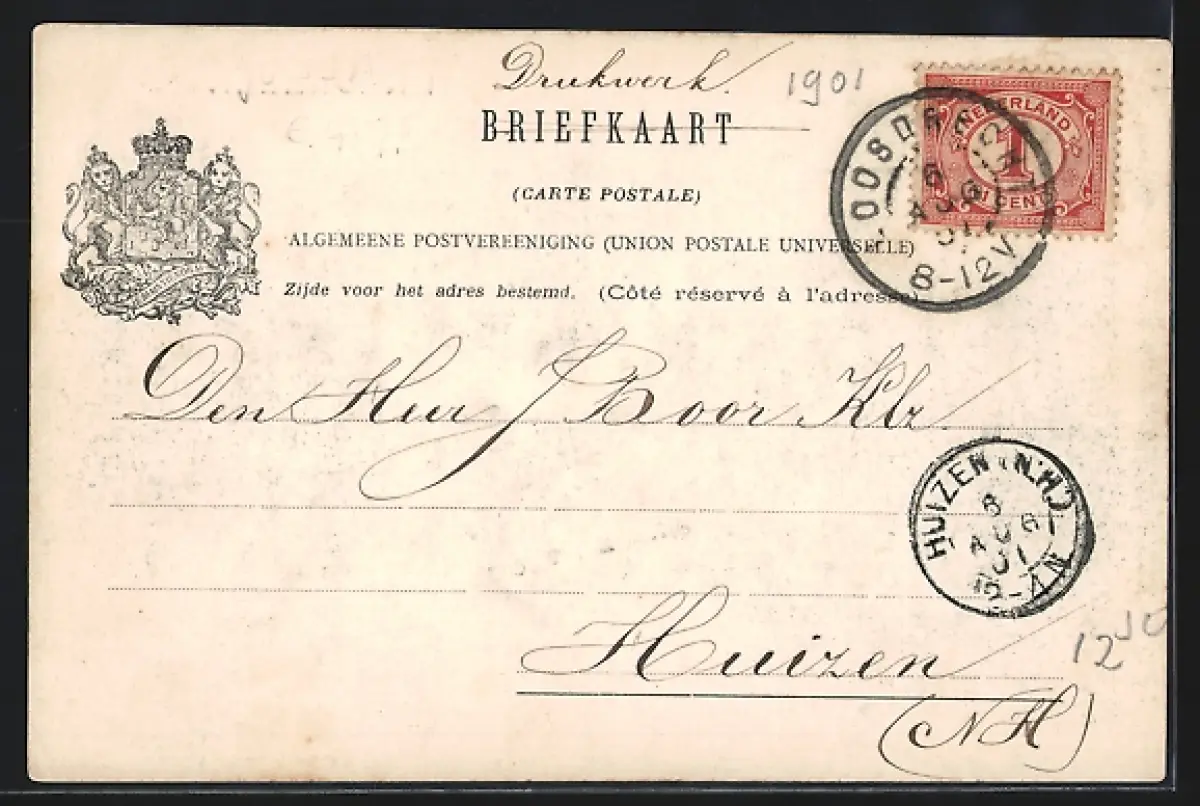 Drukwerk.
1901
BRIEFKAART
(CARTE POSTALE)
ALGEMEENE POSTVEREENIGING (UNION POSTALE UNIVERSELLE)
Zijde voor het adres bestemd. (Côté réservé à l'adresse)
NEDERLAND
1
1 CENT
6
AUG
01
8-12V
Den Heer J Boor Klz
HUIZEN (N.H.)
6
AUG
01
-4N
Huizen
(NH)
12